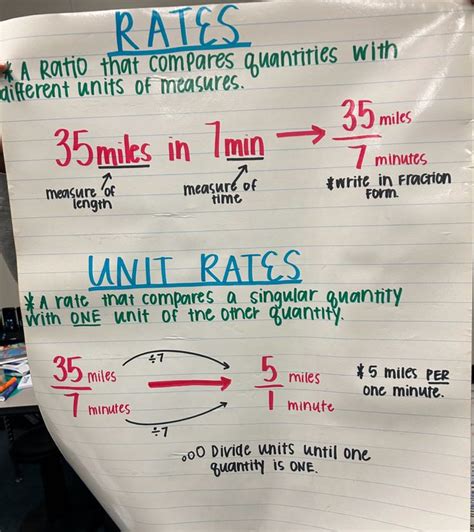 RATES
* A Ratio that compares quantities with
different units of measures.
35 miles in 7 min → 35 miles
7 minutes
measure of
length
measure of
time
*Write in Fraction
Form.
UNIT RATES
* A rate that compares a singular quantity
with ONE unit of the other quantity.
÷7
35 miles → 5 miles
7 minutes 1 minute
÷7
* 5 miles PER
one minute.
Divide units until one
quantity is ONE.